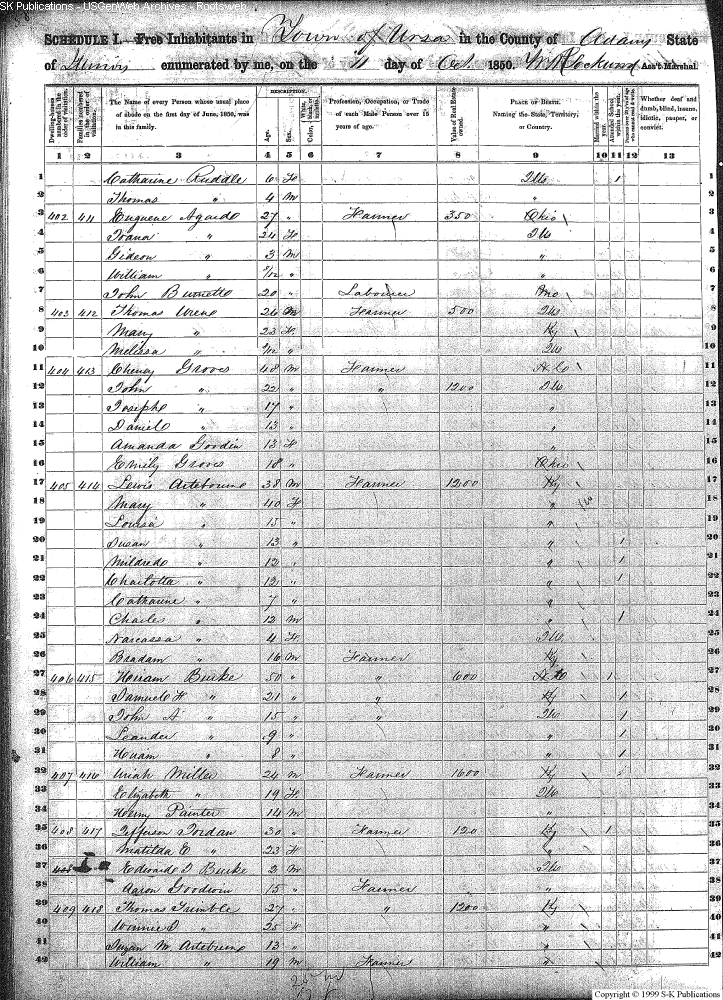 SK Publications - USGenWeb Archives - Rootsweb
SCHEDULE I.—Free Inhabitants in Town of Ursa in the County of Adams State
of Illinois enumerated by me, on the 11 day of Oct 1850. Ass't Marshal.
Dwelling-houses numbered in the order of visitation.
Families numbered in the order of visitation.
The Name of every Person whose usual place of abode on the first day of June, 1850, was in this family.
DESCRIPTION.
Age.
Sex.
Color, White, black, or mulatto.
Profession, Occupation, or Trade of each Male Person over 15 years of age.
Value of Real Estate owned.
PLACE OF BIRTH. Naming the State, Territory, or Country.
Married within the year.
Attended School within the year.
Persons over 20 y'rs of age who cannot read & write.
Whether deaf and dumb, blind, insane, idiotic, pauper, or convict.
1 2 3 4 5 6 7 8 9 10 11 12 13
1 Catharine Ruddle 6 F Ills 1 1
2 Thomas " 4 M " 2
3 402 411 Eugene 27 " Farmer 350 Ohio 3
4 " 24 F Ills 4
5 Gideon " 3 M " 5
6 William " /12 " " 6
7 John Burnett 20 " Labourer Mo 7
8 403 412 Thomas Wren 26 M Farmer 500 Ills 8
9 Mary " 23 F Ky 9
10 Melissa " /12 " Ills 10
11 404 413 Groves 48 M Farmer 11
12 John " 22 " " 1200 Ills 12
13 Joseph " 17 " " 13
14 Daniel " 13 " " 14
15 Amanda Goodin 13 F " 15
16 Emily Groves 18 " Ohio 16
17 405 414 Lewis Artebourne 38 M Farmer 1200 Ky 17
18 Mary " 40 F " 18
19 Louisa " 15 " " 19
20 Susan " 13 " " 1 20
21 Mildred " 12 " " 1 21
22 Charlotta " 12 " " 1 22
23 Catharine " 7 " " 23
24 Charles " 12 M " 1 24
25 Narcassa " 4 F Ills 25
26 16 M Farmer Ky 26
27 406 415 Hiram Burke 50 " " 600 1 27
28 Samuel H " 21 " " Ky 1 28
29 John A " 15 " " Ills 1 29
30 Leander " 9 " " 1 30
31 Hiram " 8 " " 1 31
32 407 416 Uriah Miller 24 M Farmer 1600 Ky 32
33 Elizabeth " 19 F Ills 33
34 Henry Painter 14 M " 34
35 408 417 Jefferson Jordan 30 " Farmer 120 Ky 1 35
36 Matilda E " 23 F " 36
37 Edward T Burke 2 M Ills 37
38 Aaron Goodwin 15 " Farmer " 38
39 409 418 Thomas Trimble 27 " " 1200 Ky 39
40 " 25 F " 40
41 Suzan M. Artebourne 13 " " 41
42 William " 19 M Farmer " 42
Copyright © 1999 S-K Publications